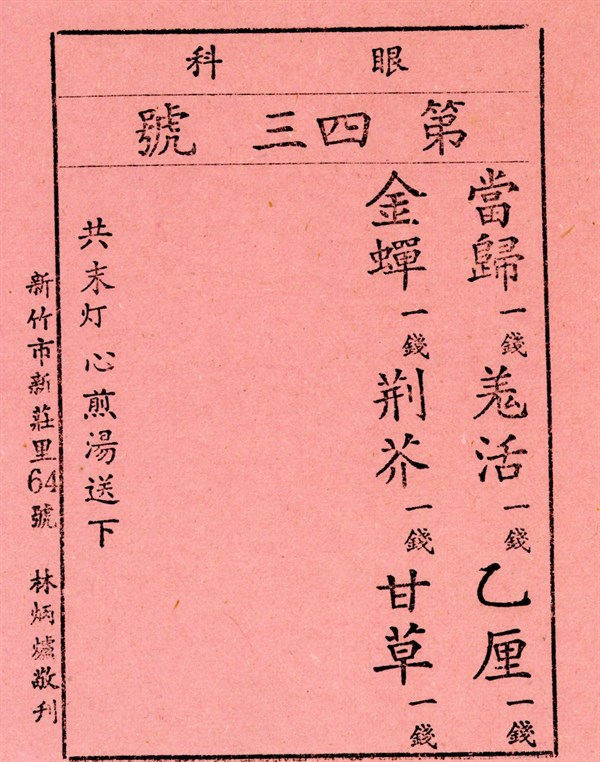 眼科
第四三號
當歸一錢 羗活一錢 乙厘一錢
金蟬一錢 荆芥一錢 甘草一錢
共末灯心煎湯送下
新竹市新莊里64號 林炳爐敬刊